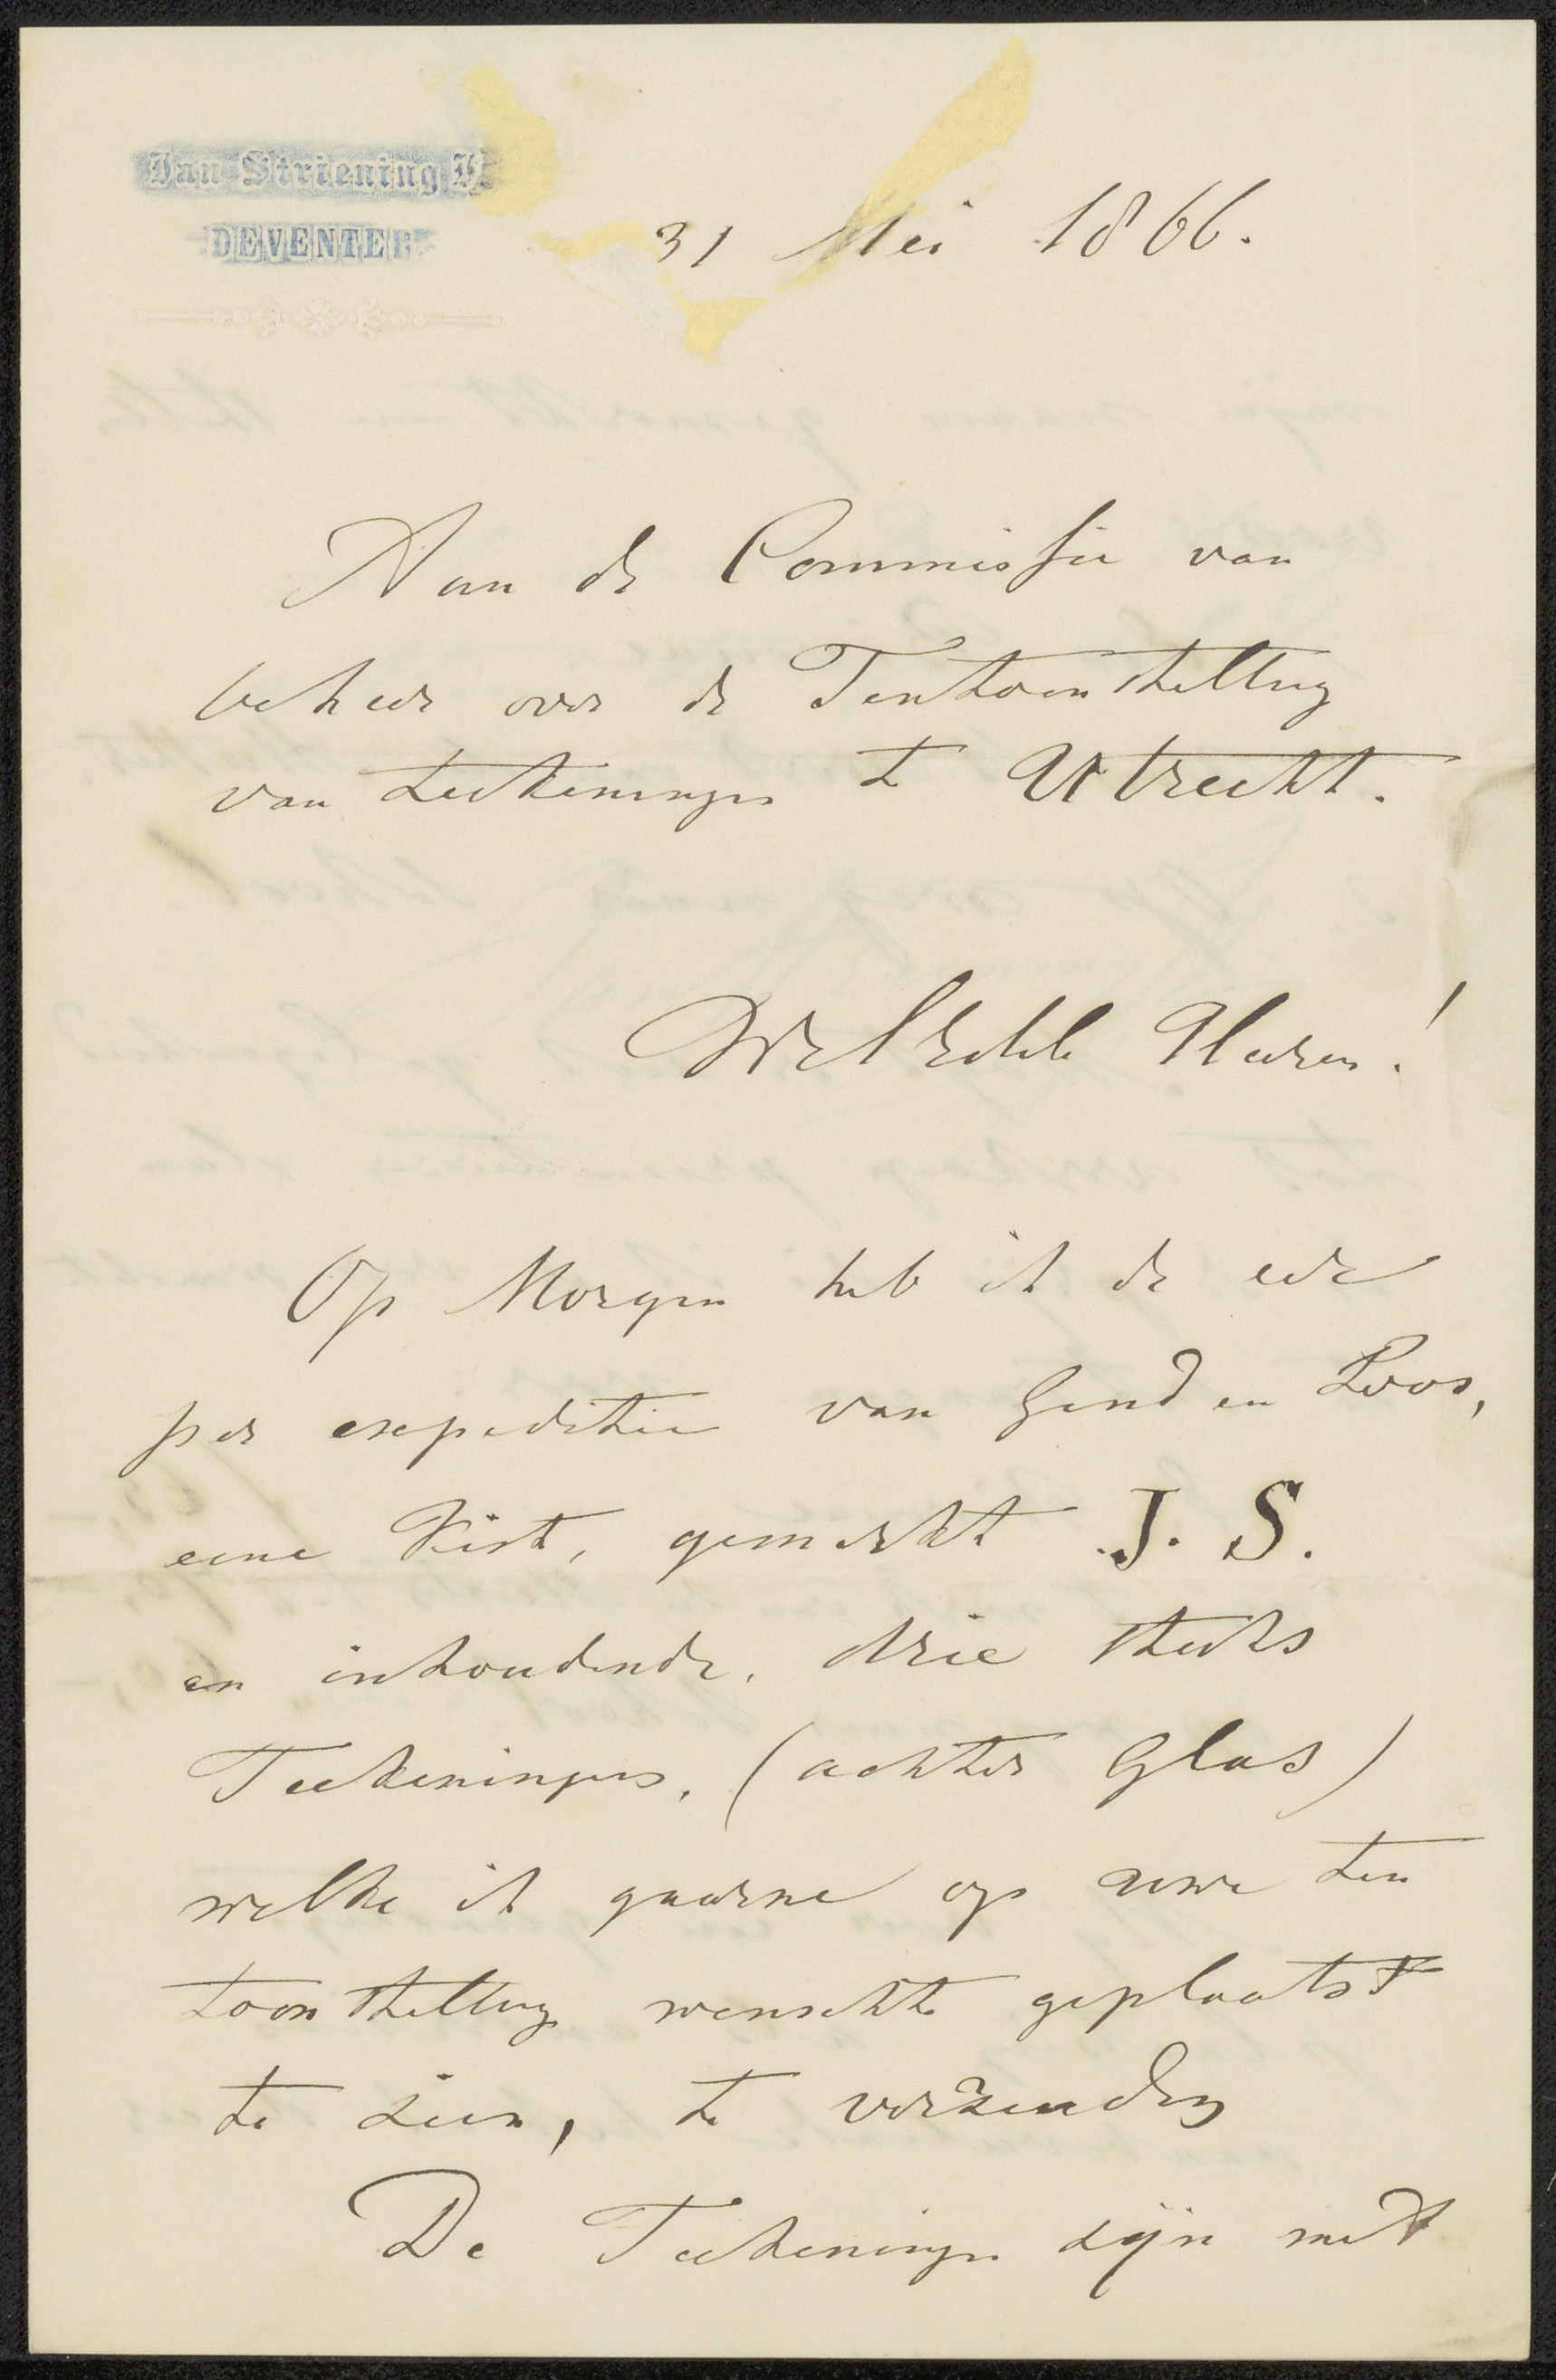 Jan Striening
DEVENTER
31 Mei 1866.
Aan de Commissie van
beheer over de Tentoonstelling
van teekeningen te Utrecht.
WelEdele Heeren!
Op Morgen heb ik de eer
per expeditie van Gend en Loos,
eene Kist, gemerkt J. S.
en inhoudende, drie stuks
Teekeningen, (achter Glas)
welke ik gaarne op uwe ten
toonstelling wenschte geplaatst
te zien, te verzenden
De Teekeningen zijn met